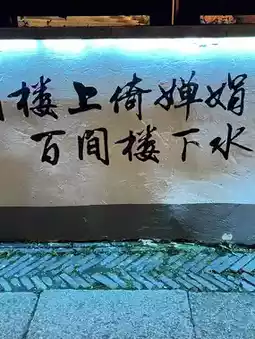 楼上倚婵娟
百間楼下水